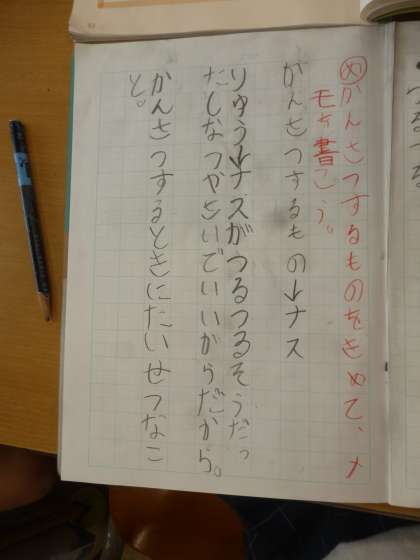 ㋱かんさつするものをきめて、メ
モを書こう。
かんさつするもの↓ナス
りゆう↓ナスがつるつるそうだっ
たしなつやさいでいいがらだから。
かんさつするときにたいせつなこ
と。